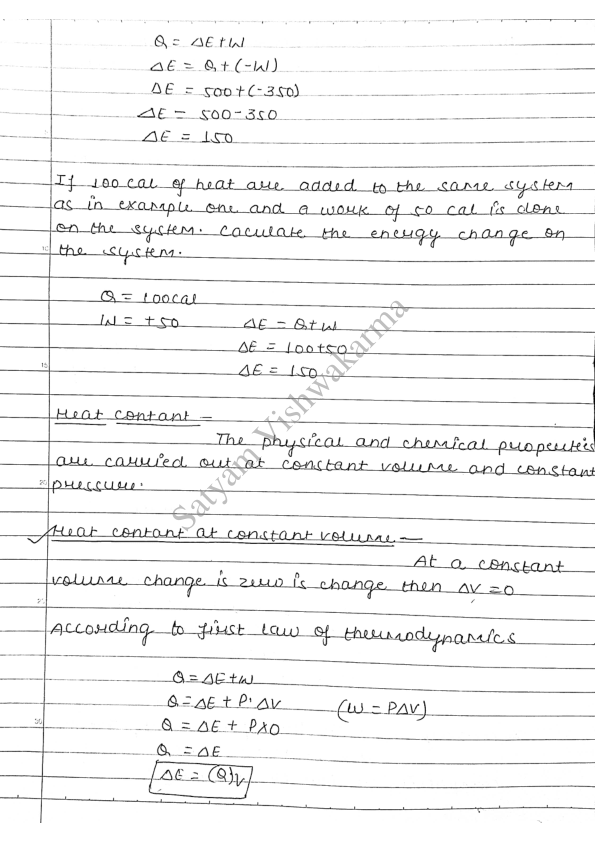 Q = ΔE+W
ΔE = Q+(-W)
ΔE = 500+(-350)
ΔE = 500-350
ΔE = 150
If 100 cal of heat are added to the same system
as in example one and a work of 50 cal is done
on the system. caculate the energy change on
the system.
Q = 100cal
W = +50 ΔE = Q+W
ΔE = 100+50
ΔE = 150
Heat contant -
The physical and chemical properties
are carried out at constant volume and constant
pressure.
Heat contant at constant volume -
At a constant
volume change is zero is change then ΔV = 0
According to first law of thermodynamics
Q = ΔE+W
Q = ΔE + P·ΔV (W = PΔV)
Q = ΔE + P×0
Q = ΔE
ΔE = (Q)v
Satyam Vishwakarma
10
15
20
25
30